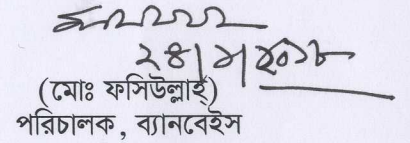 ২৪/৮/২০১৮
(মোঃ ফসিউল্লাহ্)
পরিচালক, ব্যানবেইস